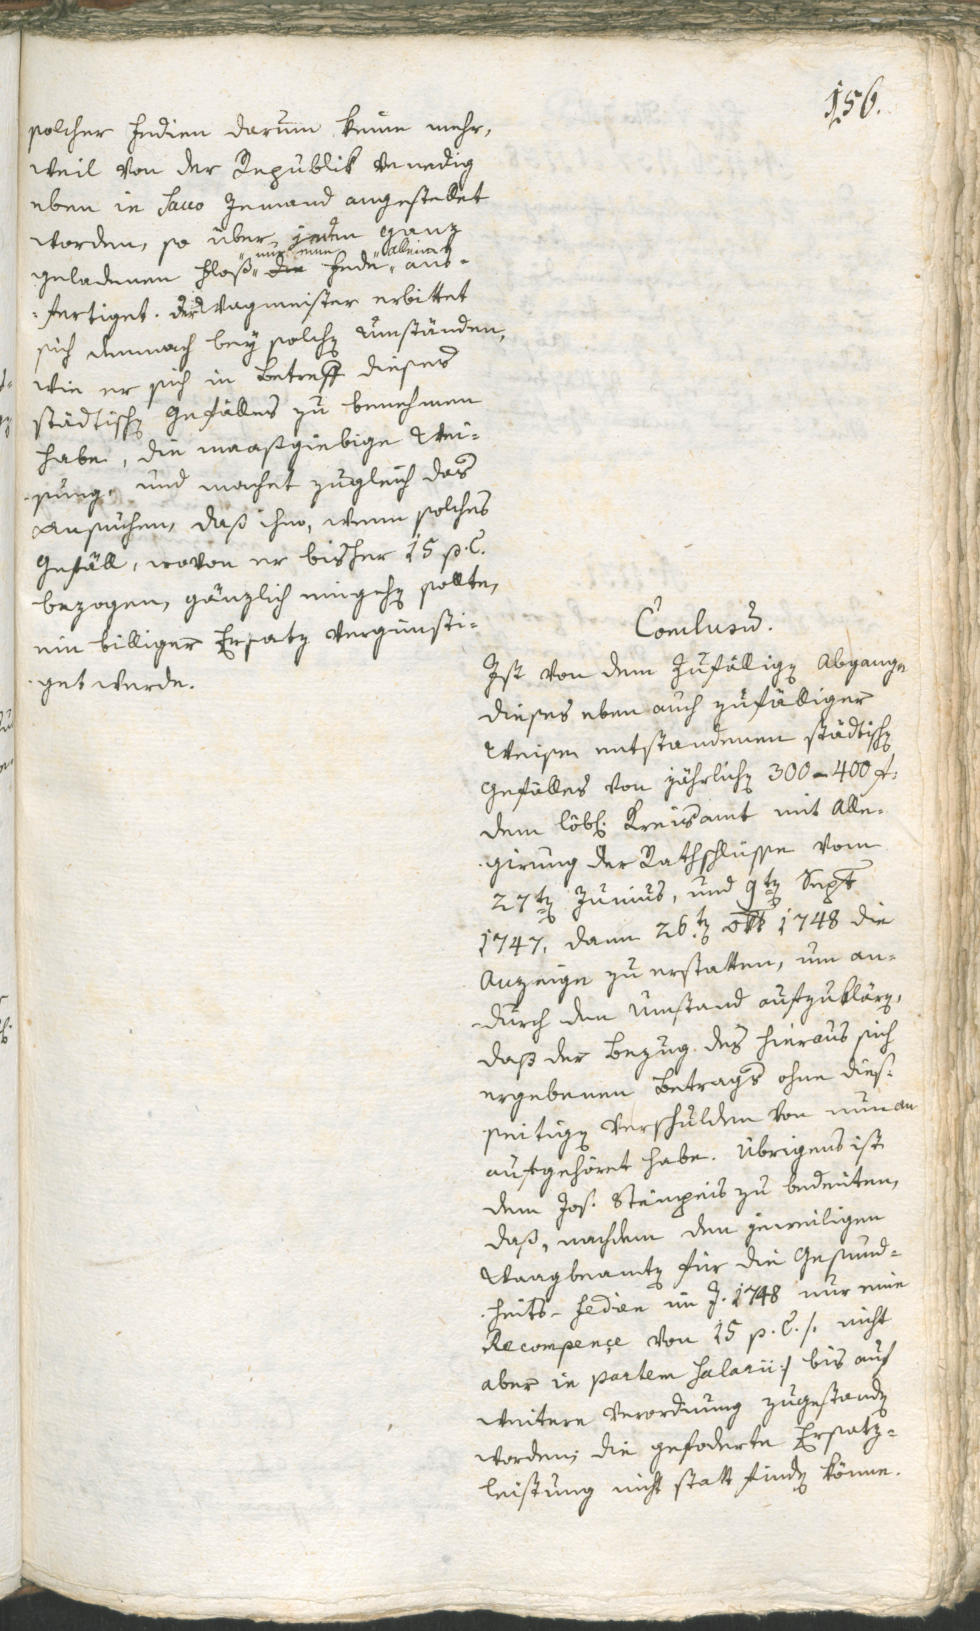 156.
solcher Fedien darum keine mehr,
weil von der Republik Venedig
eben in Sacco Jemand angestellet
worden, so über jeden ganz
geladenen Floß „nur eine„ die Fede „allein„ aus-
fertiget. Der Wagmeister erbittet
sich demnach bey solchen Umständen,
wie er sich in Betreff dieses
städtischen Gefälles zu benehmen
habe, die maaßgiebige Wei-
sung, und machet zugleich das
Ansuchen, daß ihm, wenn solches
Gefäll, wovon er bisher 15 p. C.
bezogen, gänzlich eingehen sollte,
ein billiger Ersatz vergünsti-
get werde.
Conclusum.
Ist von dem Zufälligen Abgange
dieses eben auch zufälliger
Weise entstandenen städtischen
Gefälles von jährlichen 300-400 f.
dem löbl. Kreisamt mit Alle-
girung der Rathschlüsse vom
27ten Junius, und 9ten Sept
1747, dann 26.ten Okt 1748 die
Anzeige zu erstatten, um an-
durch den Umstand aufzuklären,
daß der Bezug des hieraus sich
ergebenen Betrags ohne dies-
seitigen Verschulden von nun an
aufgehöret habe. Übrigens ist
dem Jos. Stampeis zu bedeuten,
daß, nachdem den jeweiligen
Waagbeamten für die Gesund-
heits-Fedien im J. 1748 nur eine
Recompençe von 15 p. C. /: nicht
aber in partem Salarii :/ bis auf
weitere Verordnung zugestanden
worden; die gefoderte Ersatz-
leistung nicht statt finden könne.